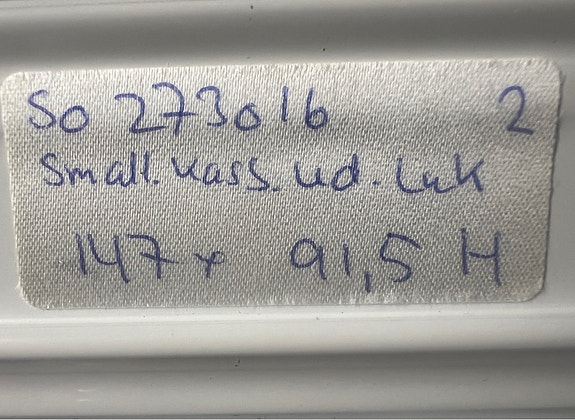 So 273016 2
Small. Kass. ud. Luk
147 x 91,5 H